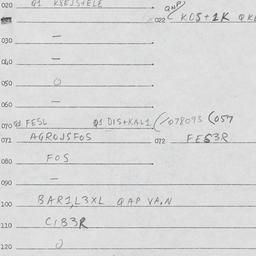 020 Q1 KSEJS+ELE
022 QAP KOS+1K QKE
030 —
040 —
050 0
060 —
070 Q1 FESL Q1 DIS+KAL1 (/078093 (057
071 AGROJSFOS 072 FES3R
080 FOS
090 —
100 BAR1,L3XL QAP VA,N
110 C1B3R
120 0